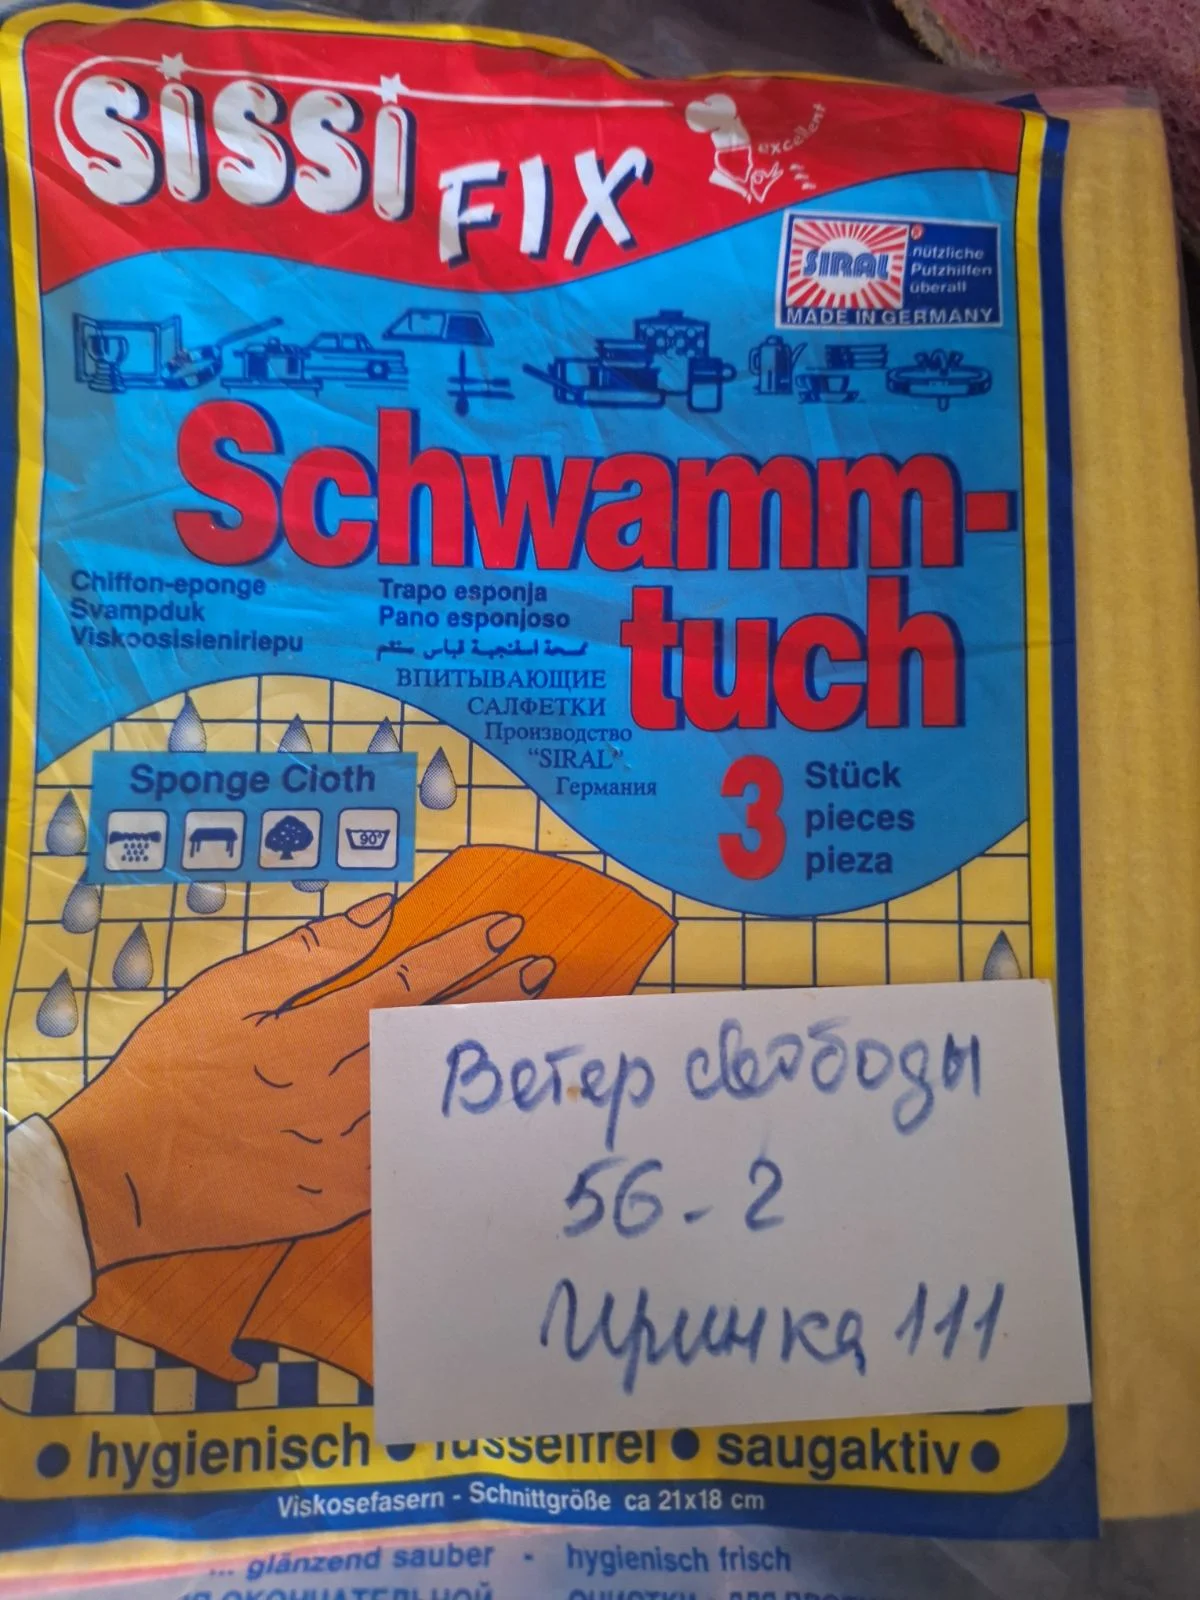 SISSI
FIX
excellent
SIRAL ®
nützliche
Putzhilfen
überall
MADE IN GERMANY
Schwamm-
tuch
Chiffon-eponge
Svampduk
Viskoosisieniriepu
Trapo esponja
Pano esponjoso
ВПИТЫВАЮЩИЕ
САЛФЕТКИ
Производство
“SIRAL”
Германия
3 Stück
pieces
pieza
Sponge Cloth
90°
Ветер свободы
56-2
Иринка 111
• hygienisch • fusselfrei • saugaktiv •
Viskosefasern - Schnittgröße ca 21x18 cm
... glänzend sauber - hygienisch frisch
ОКОНЧАТЕЛЬНОЙ ОЧИСТКИ